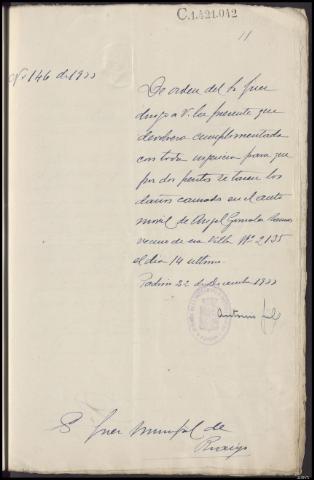 C.1.421.042
11
Nº 146 de 1933
De orden del Sr Juez
dirijo a V. la presente que
devolvera cumplimentada
con toda urgencia para que
por dos peritos se tasen los
daños causados en el auto
movil de Angel Gonzalez Ramos
vecino de esa Villa Nº 2135
el dia 14 ultimo
Padron 22 de Diciembre 1933
Antonio
Sr Juez Municipal de